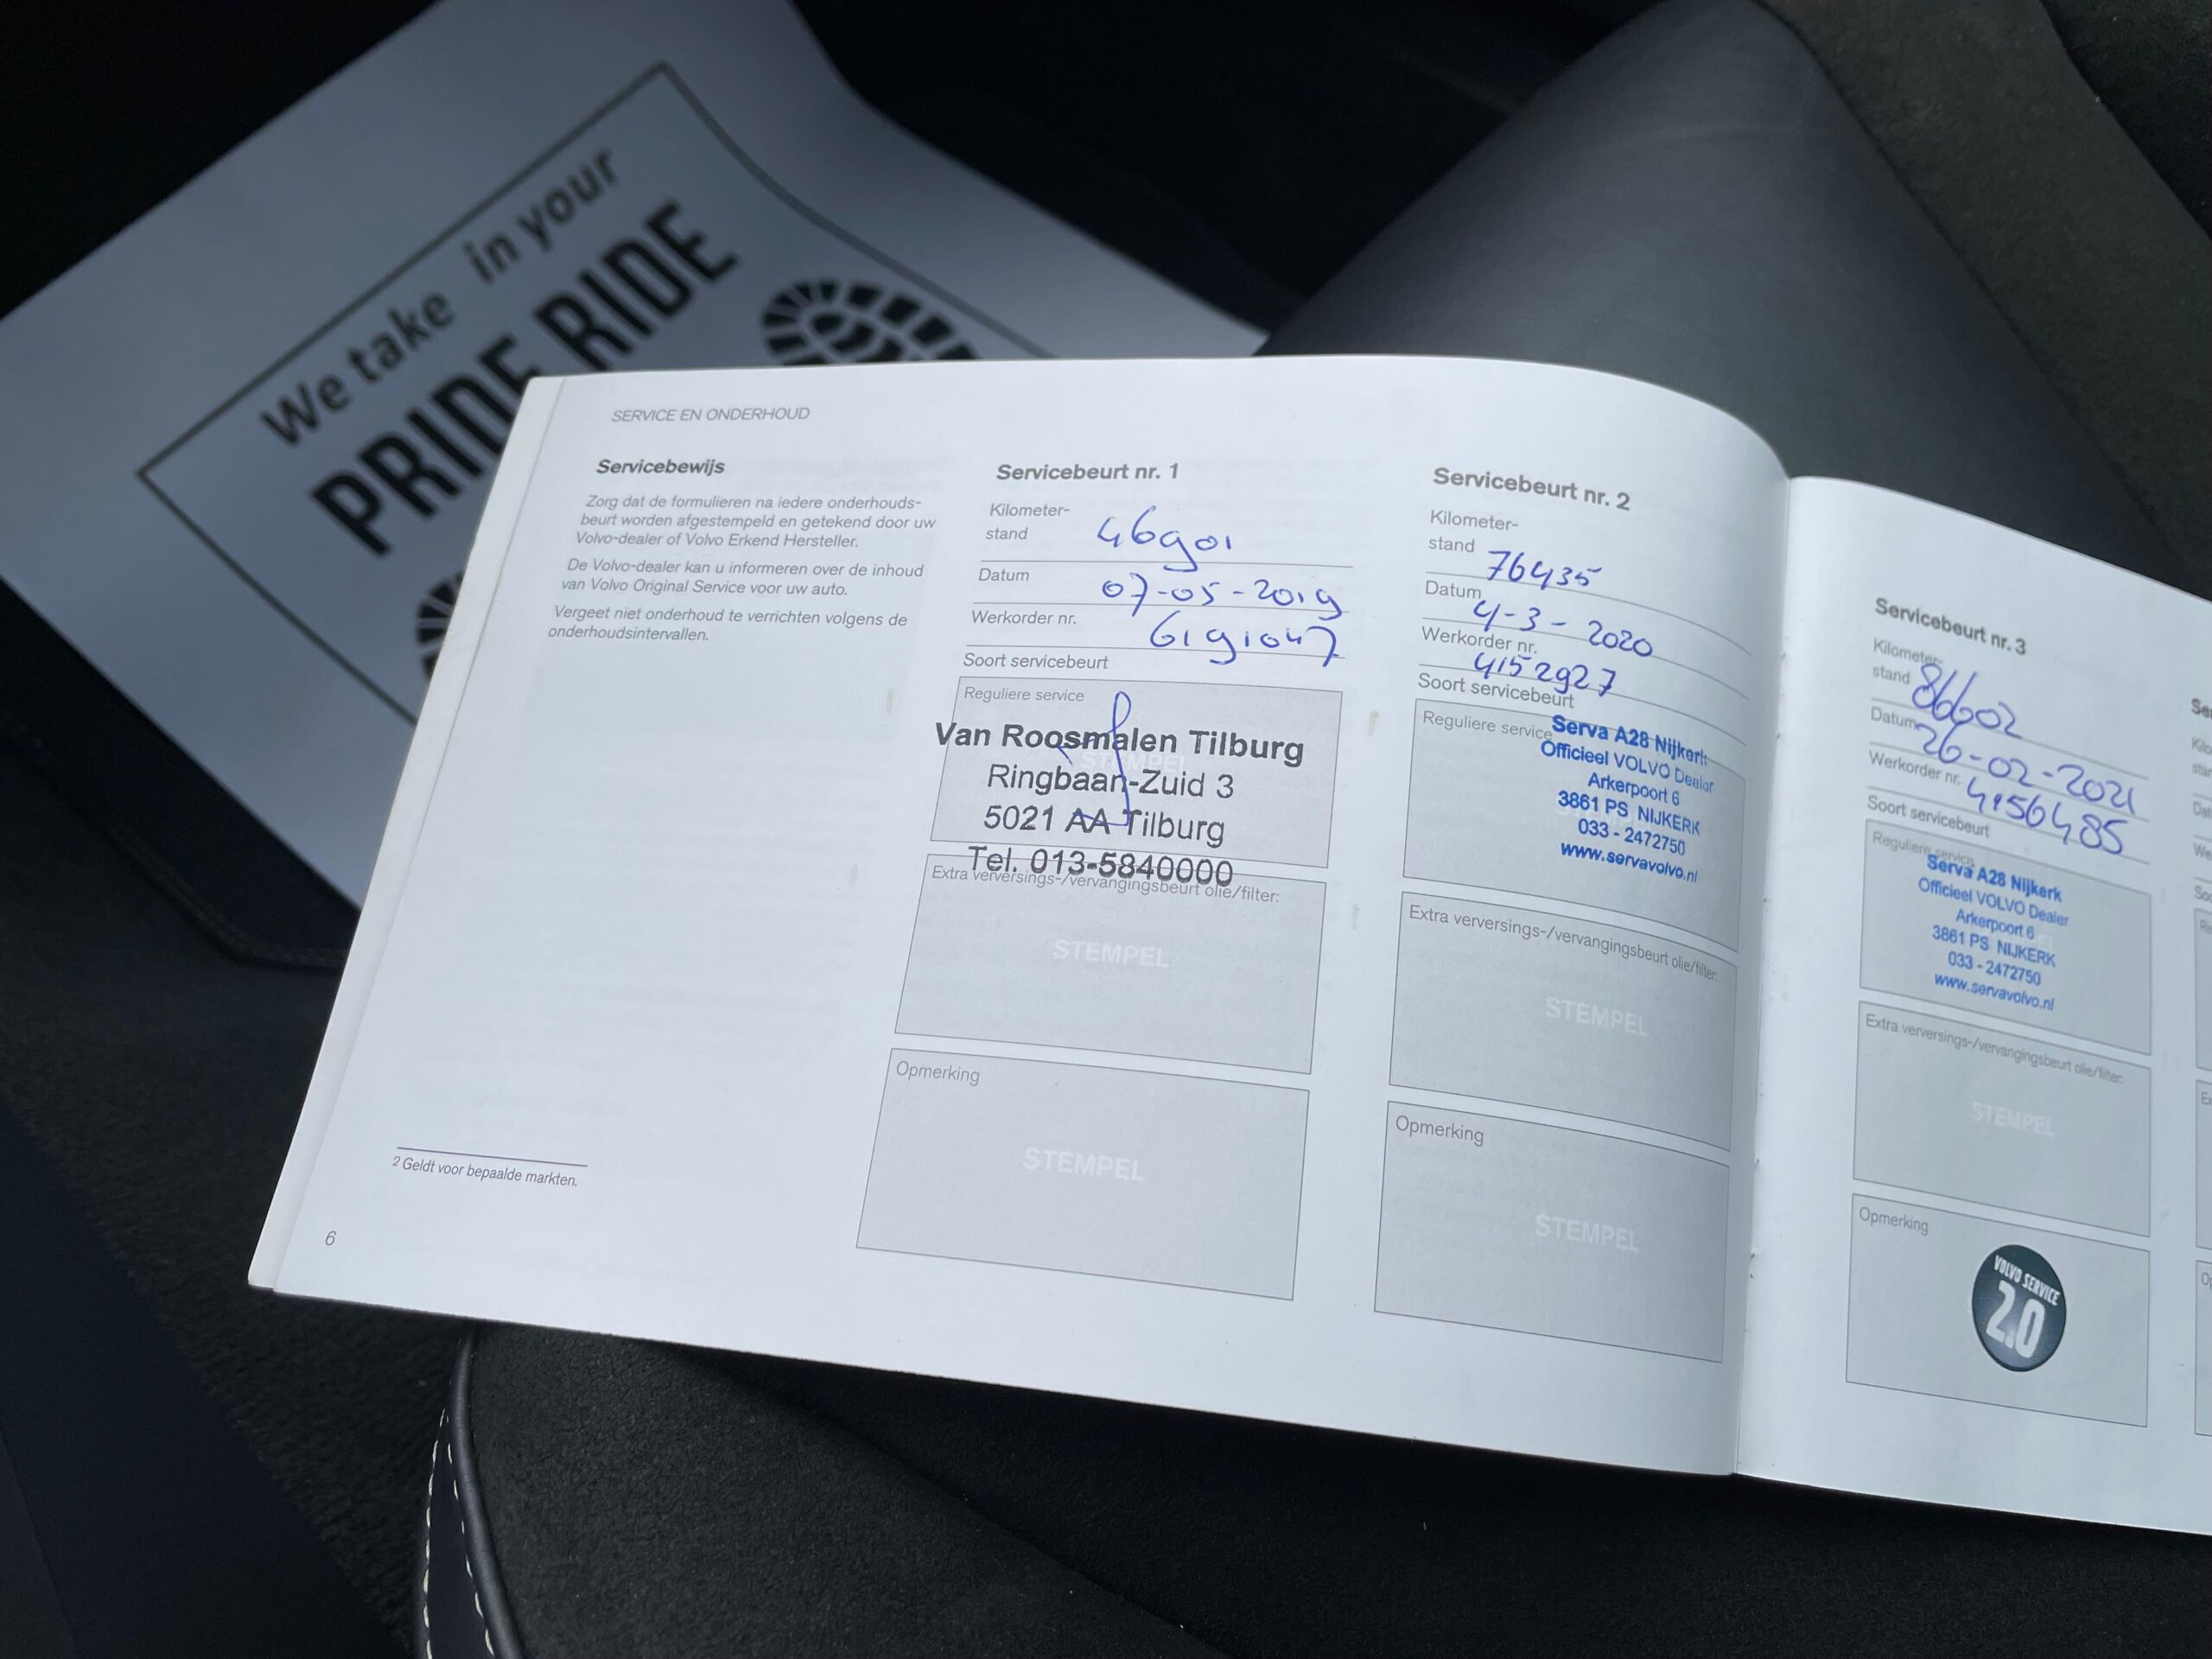 We take in your
PRIDE RIDE
SERVICE EN ONDERHOUD
Servicebewijs
Zorg dat de formulieren na iedere onderhouds-
beurt worden afgestempeld en getekend door uw
Volvo-dealer of Volvo Erkend Hersteller.
De Volvo-dealer kan u informeren over de inhoud
van Volvo Original Service voor uw auto.
Vergeet niet onderhoud te verrichten volgens de
onderhoudsintervallen.
2 Geldt voor bepaalde markten.
6
Servicebeurt nr. 1
Kilometer-
stand 46901
Datum 07-05-2019
Werkorder nr. 6191047
Soort servicebeurt
Reguliere service
STEMPEL
Van Roosmalen Tilburg
Ringbaan-Zuid 3
5021 AA Tilburg
Tel. 013-5840000
Extra verversings-/vervangingsbeurt olie/filter:
STEMPEL
Opmerking
STEMPEL
Servicebeurt nr. 2
Kilometer-
stand 76435
Datum 4-3-2020
Werkorder nr. 4152927
Soort servicebeurt
Reguliere service
Serva A28 Nijkerk
Officieel VOLVO Dealer
Arkerpoort 6
3861 PS NIJKERK
033 - 2472750
www.servavolvo.nl
Extra verversings-/vervangingsbeurt olie/filter:
STEMPEL
Opmerking
STEMPEL
Servicebeurt nr. 3
Kilometer-
stand 86602
Datum 26-02-2021
Werkorder nr. 4156485
Soort servicebeurt
Reguliere service
Serva A28 Nijkerk
Officieel VOLVO Dealer
Arkerpoort 6
3861 PS NIJKERK
033 - 2472750
www.servavolvo.nl
Extra verversings-/vervangingsbeurt olie/filter:
STEMPEL
Opmerking
VOLVO SERVICE
2.0